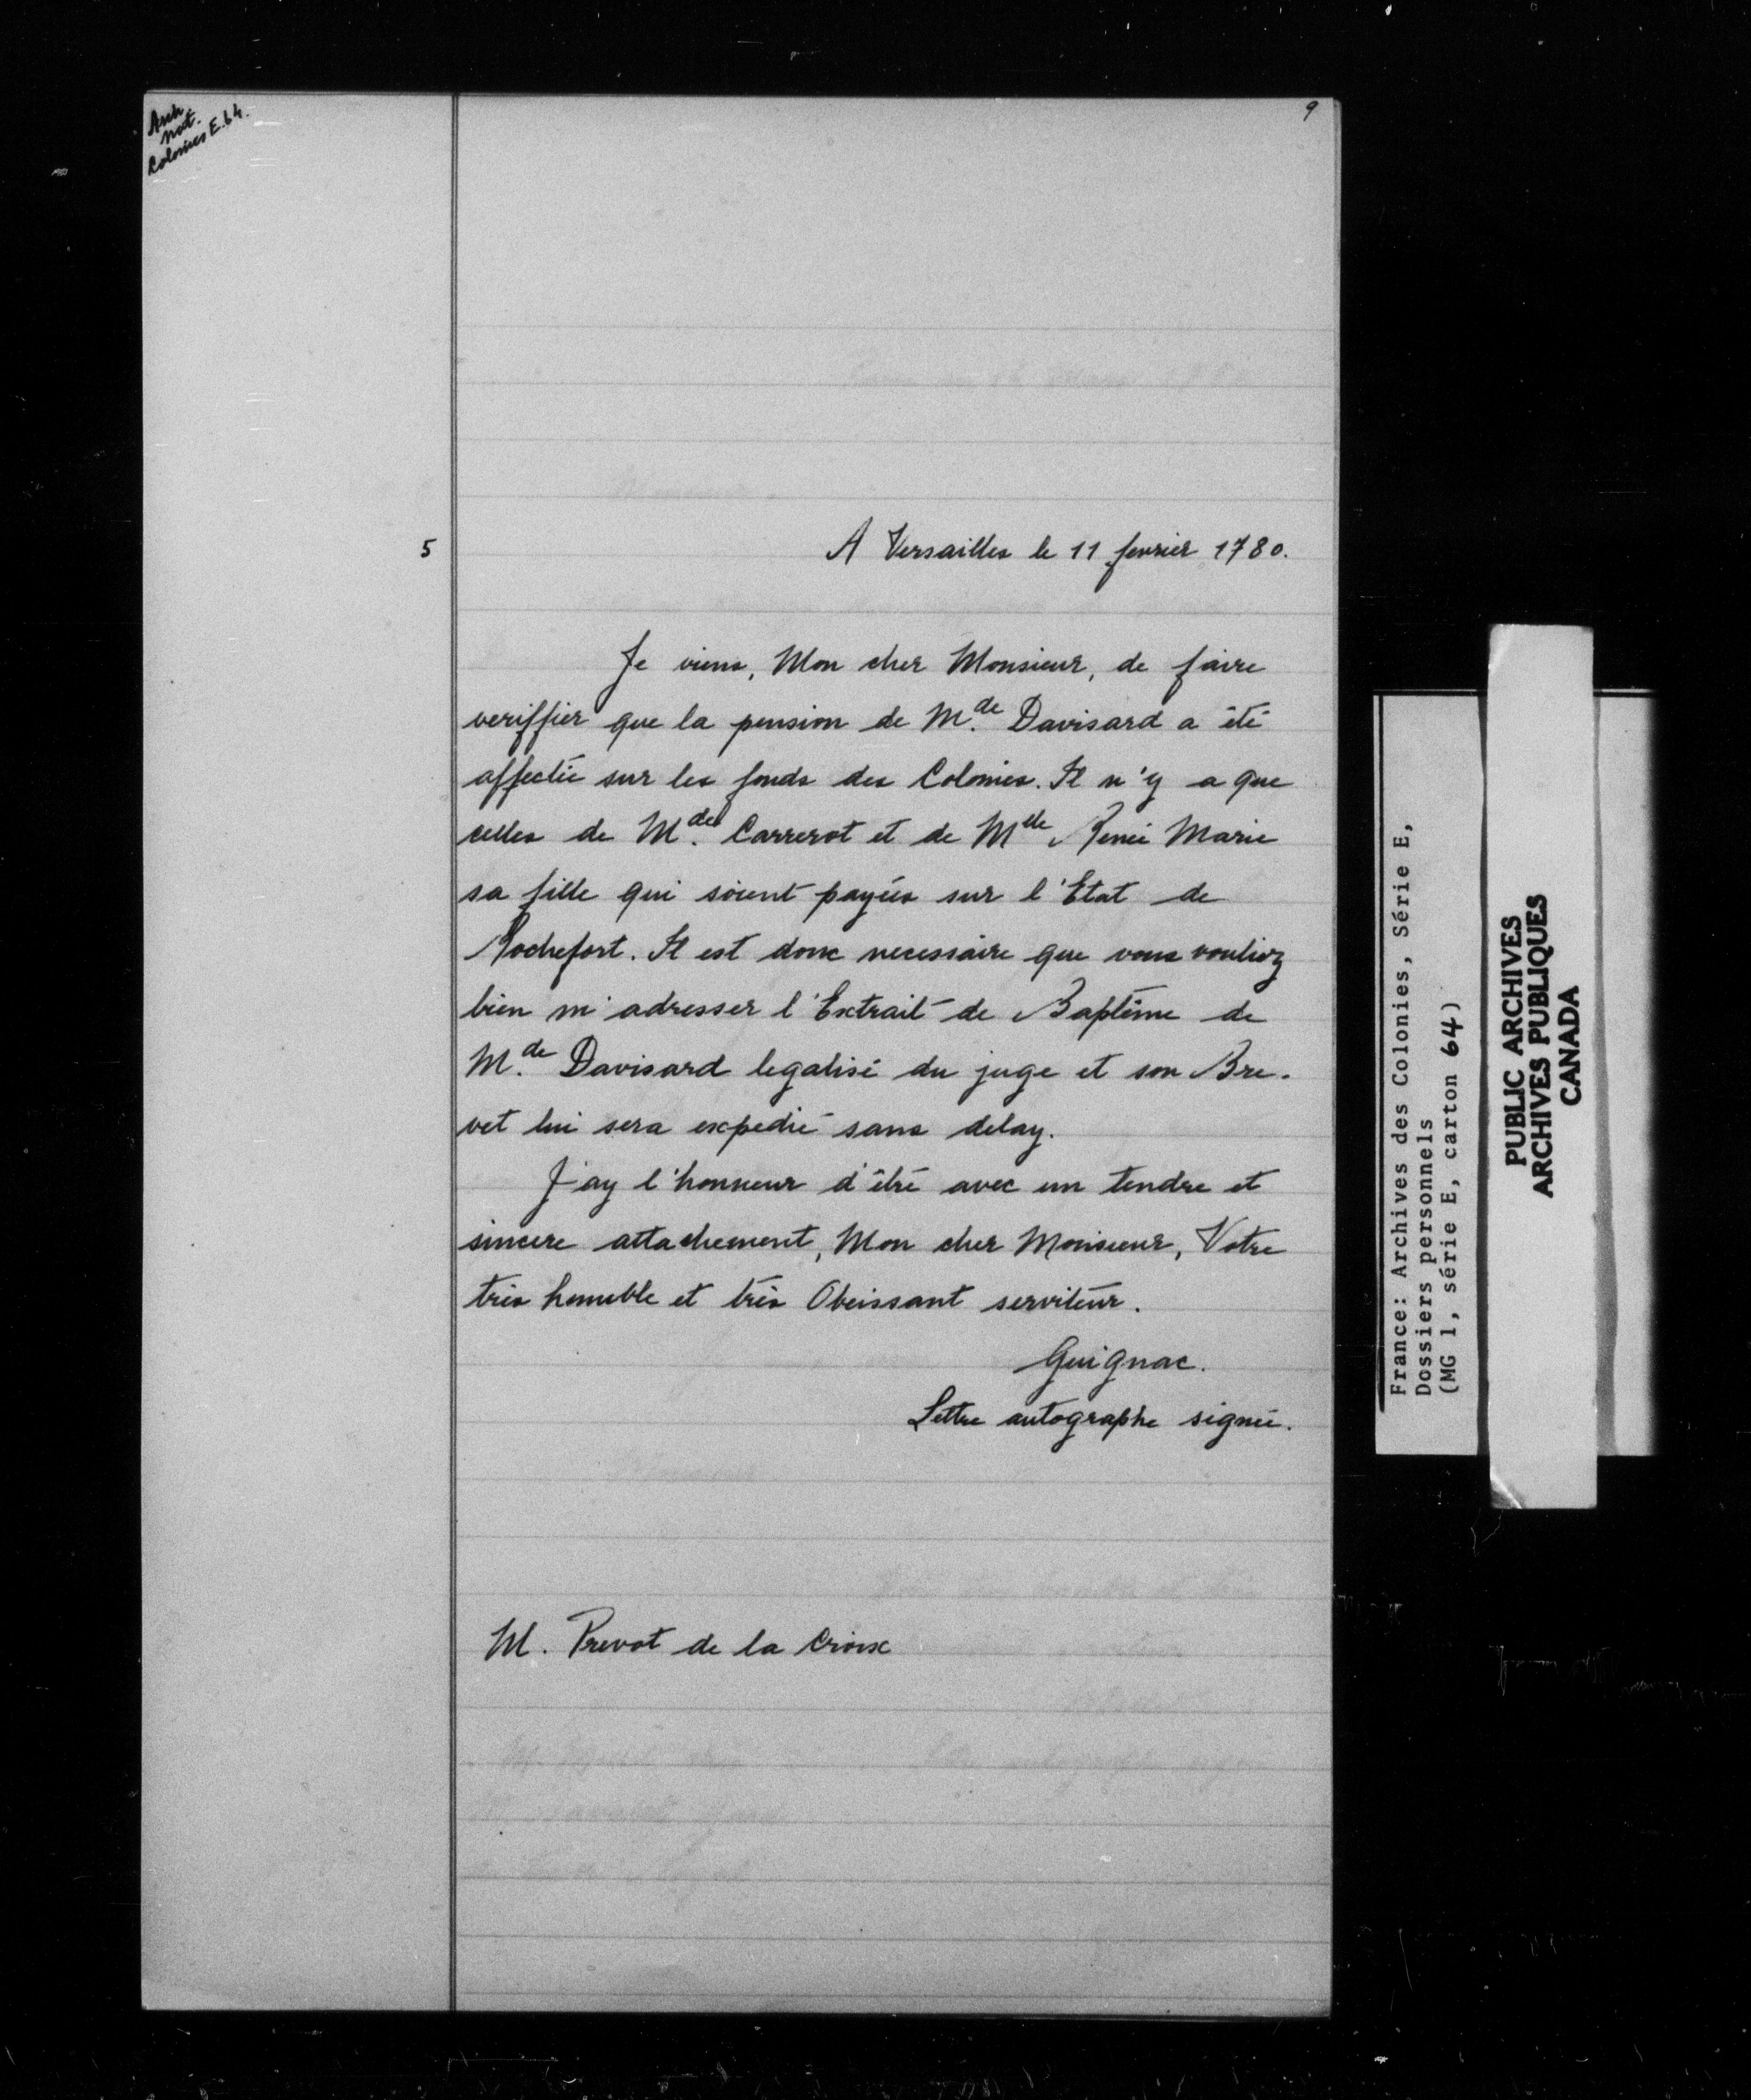 Arch.
nat.
Colonies E.64.
9
5
A Versailles le 11 fevrier 1780.
Je viens, Mon cher Monsieur, de faire
veriffier que la pension de M.de Davisard a été
affectée sur les fonds des Colonies. Il n'y a que
celles de M.de Carrerot et de Mlle Renée Marie
sa fille qui soient payées sur l'Etat de
Rochefort. Il est donc necessaire que vous vouliez
bien m'adresser l'Extrait de Baptême de
M.de Davisard legalisé du juge et son Bre-
vet lui sera expedié sans delay.
J'ay l'honneur d'être avec un tendre et
sincere attachement, Mon cher Monsieur, Votre
très humble et très Obeissant serviteur.
Guignac.
Lettre autographe signée.
M. Prevot de la Croix
France: Archives des Colonies, Série E,
Dossiers personnels
(MG 1, série E, carton 64)
PUBLIC ARCHIVES
ARCHIVES PUBLIQUES
CANADA